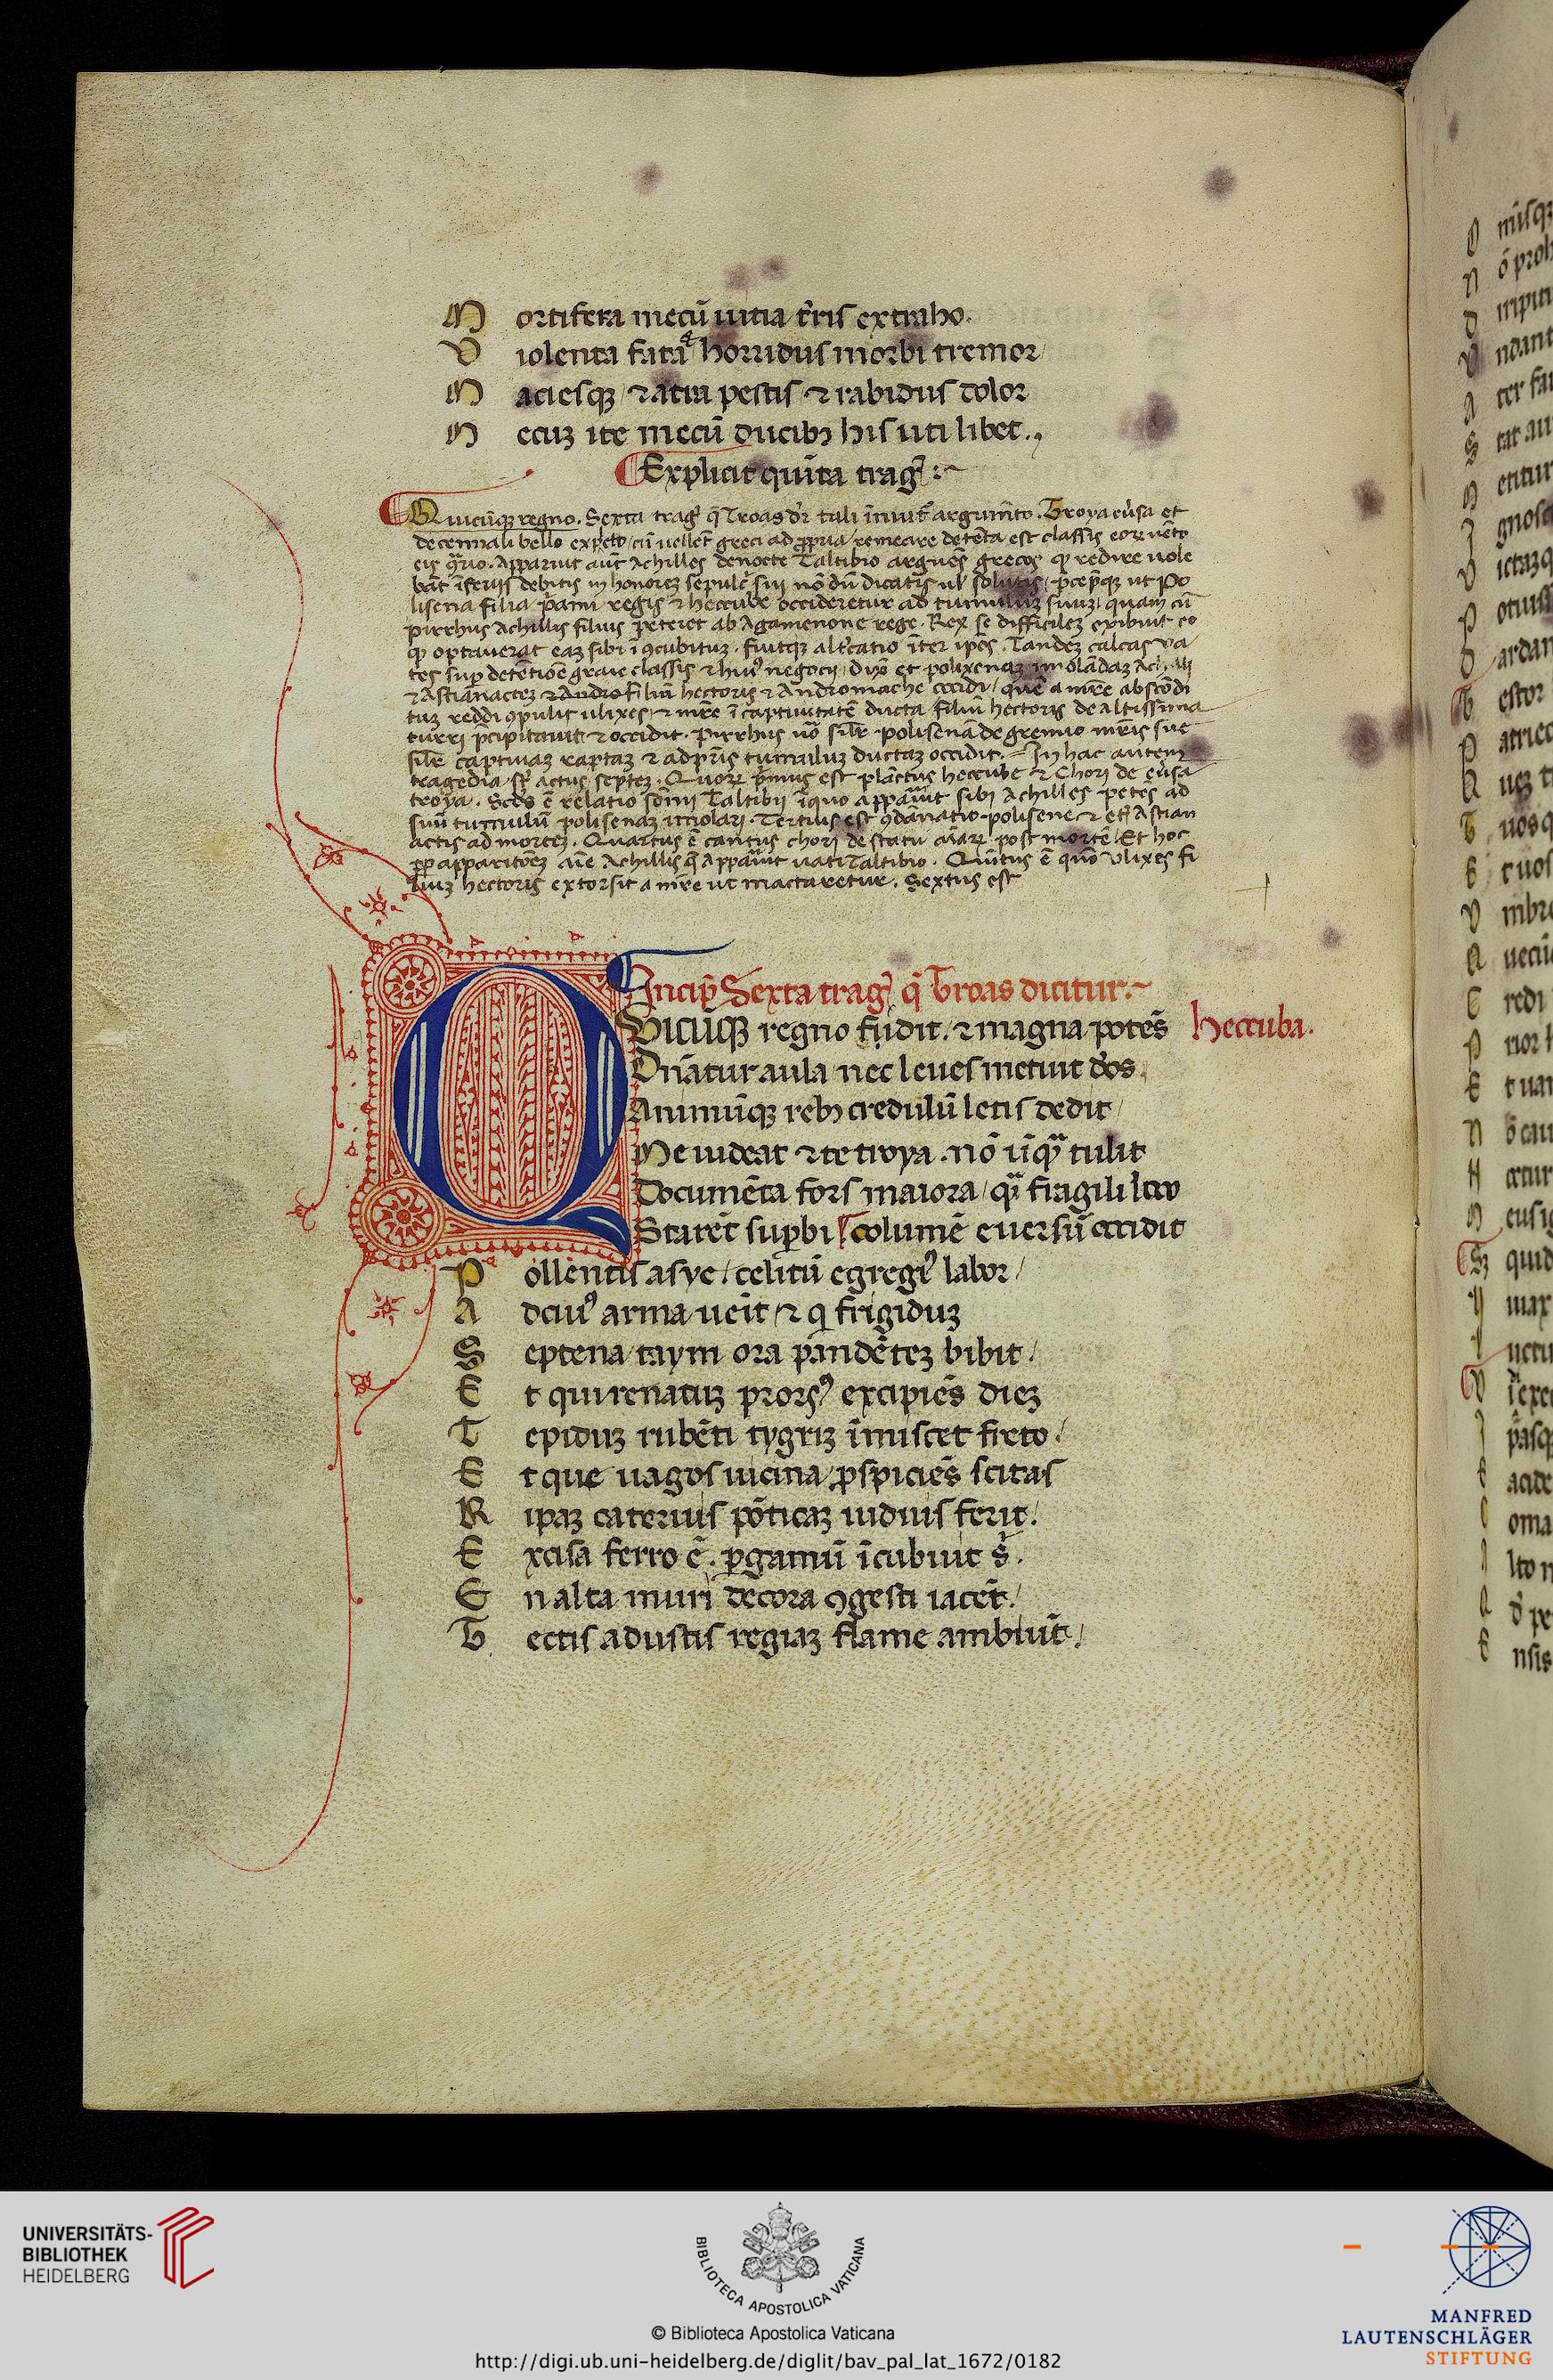 M ortifera mecũ uitia t̃ris extraho.
V iolenta fata & horridus morbi tremor
M aciesqꝫ & atra pestis & rabidus dolor
M ecuꝫ ite mecũ ducibꝫ his uti libet.
Explicit quĩta trag̃
Quicũqꝫ regno. Sexta trag̃ q̃ Troas dr̃ tali ĩnuit᷑ argum̃to. Troya eũsa et
decennali bello expleto cũ uellẽt greci ad ꝓpria remeare detẽta est classis eoꝝ uẽto
eis ꝯ̃rio. Apparuit aũt Achilles de nocte Taltibio arguẽs grecos qꝫ redire uole
bãt ĩferiis debitis in honoreꝫ sepulcr̃ sui nõ dũ dicatis ul̃ solutis p̃cepitqꝫ ut Po
lisena filia p̃ami regis & heccube occideretur ad tumuluꝫ suuꝫ quam cũ
pirrhus Achillis filius peteret ab Agamenone rege. Rex se difficileꝫ exibuit eo
qꝫ optauerat eaꝫ sibi ĩ ꝯcubituꝫ. fuitqꝫ alt̃catio ĩter ip̃os. Tandeꝫ calcas ua
tes suꝑ detẽtiõe graue classis & huiꝰ negocii dixit et polixenaꝫ imolãdaꝫ Achilli
& Astianacteꝫ filiũ hectoris & Andromache occidi quẽ a mr̃e abscõdi
tuꝫ reddi ꝯpulit ulixes & mr̃e ĩ captiuitatẽ ducta filiũ hectoris de altissima
turri p̃cipitauit & occidit. Pirrhus uo̾ sil̃r polisenã de gremio mr̃is sue
sil̃r captiuaꝫ raptaꝫ & ad pr̃is tumuluꝫ ductaꝫ occidit. In hac autem
tragedia st̃ actus septeꝫ. Quoꝝ p̃mus est planctus heccube & Chori de eũsa
troya. Scd̾s ẽ relatio sõnii Taltibii ĩ quo apparuit sibi Achilles petẽs ad
suũ tumulũ polisenaꝫ imolari. Tertius est ꝯdãnatio polisene & etꝫ Astian
actis ad morteꝫ. Quartus ẽ cantus chori de statu aĩaꝝ post mortẽ. Et hoc
ꝓp̃ apparitõeꝫ aĩe Achillis q̃ apparuit uati Taltibio. Quĩtus ẽ quõ Vlixes fi
liuꝫ hectoris extorsit a mr̃e ut mactaretur. Sextus est
Incip̃ Sexta trag̃ q̃ Troas dicitur.
QVicũqꝫ regno fidit & magna potẽs heccuba.
Dñatur aula nec leues metuit d̾os
Animũqꝫ rebꝫ credulũ letis dedit
Me uideat & te troya. nõ ũqᷓ tulit
Documẽta fors maiora qᷓ fragili loco
Starẽt suꝑbi columẽ euersũ occidit
P ollentis asye celitũ egregiꝰ labor
A d cuiꝰ arma uẽit & q̃ frigiduꝫ
S eptena taym ora pandẽteꝫ bibit
E t qui renatuꝫ prorsꝰ excipiẽs dieꝫ
T epiduꝫ rubẽti tygriꝫ ĩmiscet freto.
E t que uagos uicina ꝓspiciẽs scitas
R ipaꝫ cateruis põticaꝫ uiduis ferit.
E xcisa ferro ẽ. ꝑgamũ ĩcubuit s̃.
E n alta muri decora ꝯgesti iacẽt.
T ectis adustis regiaꝫ flame ambiũt.
UNIVERSITÄTS-
BIBLIOTHEK
HEIDELBERG
BIBLIOTECA APOSTOLICA VATICANA
© Biblioteca Apostolica Vaticana
http://digi.ub.uni-heidelberg.de/diglit/bav_pal_lat_1672/0182
MANFRED
LAUTENSCHLÄGER
STIFTUNG